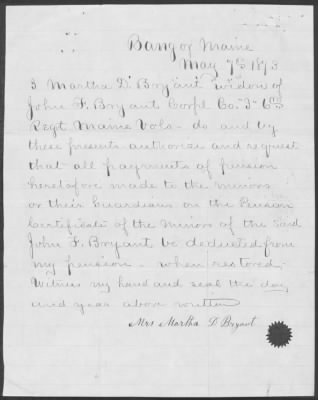 Bangor Maine
May 7th 1873
I Martha D. Bryant widow of
John F. Bryant Corpl Co. "I" 6th
Regt Maine Vols - do and by
these presents authorize and request
that all payments of pension
heretofore made to the minors
or their Guardians on the Pension
Certificate of the Minors of the Said
John F. Bryant be deducted from
my pension - when restored -
Witness my hand and seal the day
and year above written
Mrs Martha D. Bryant